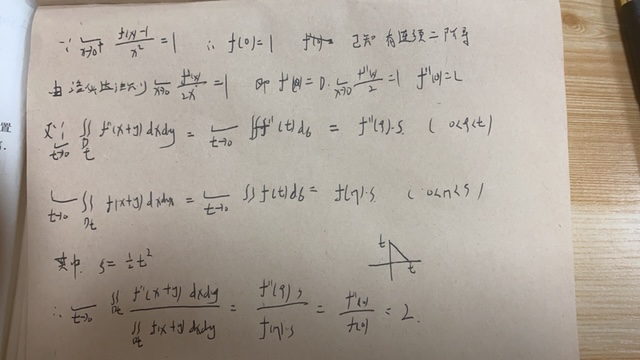 ∵ lim_{x→0⁺} (f(x)-1)/x² = 1 ∴ f(0)=1 已知有连续二阶导
由洛必达法则 lim_{x→0} f'(x)/2x = 1 即 f'(0)=0. lim_{x→0} f''(x)/2 = 1 f''(0)=2
又∵ lim_{t→0} ∬_{D_t} f''(x+y)dxdy = lim_{t→0} ∬ f''(t)dσ = f''(ξ)·S (0<ξ<t)
lim_{t→0} ∬_{D_t} f(x+y)dxdy = lim_{t→0} ∬ f(t)dσ = f(η)·S
其中 S = ½t²
t
t
∴ lim_{t→0} ∬_{D_t} f''(x+y)dxdy / ∬_{D_t} f(x+y)dxdy = f''(ξ)·S / f(η)·S = f''(0)/f(0) = 2.
置